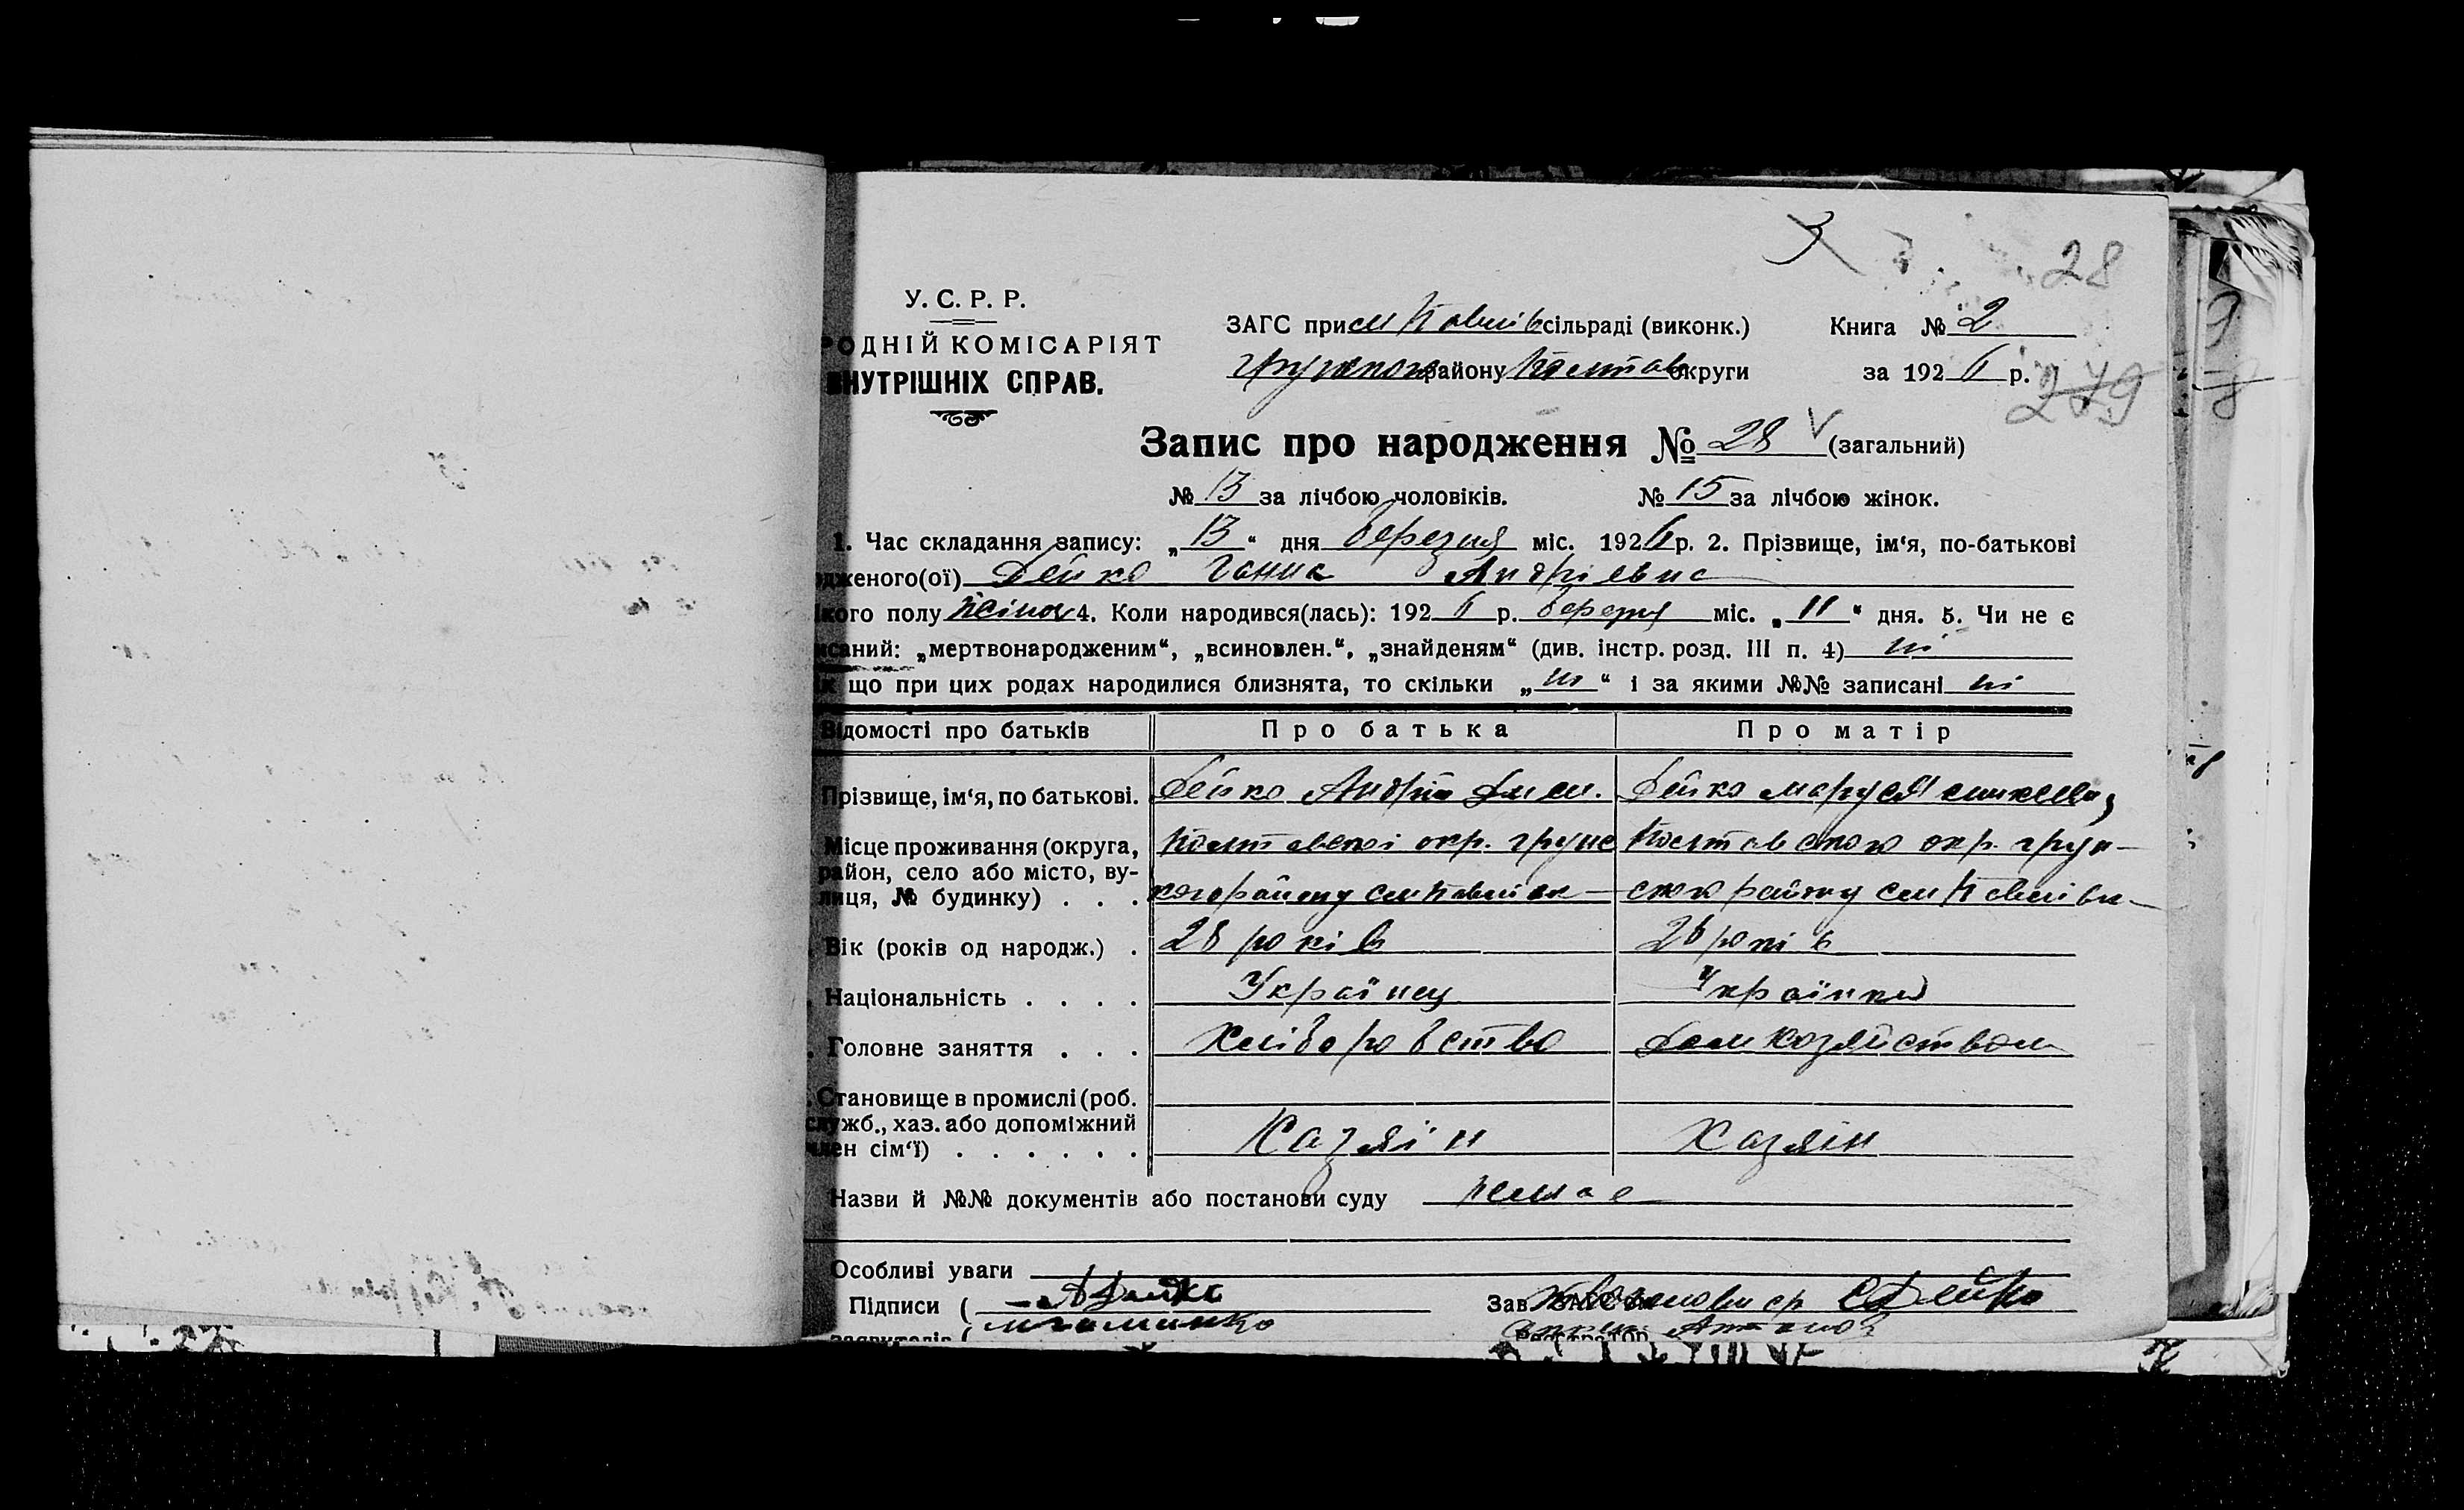 3
28
У. С. Р. Р.
ОДНІЙ КОМІСАРІЯТ
ВНУТРІШНІХ СПРАВ.
ЗАГС при сільраді (виконк.)
Книга № 2
району Полтав округи
за 1926 р.
279
Запис про народження № 28 (загальний)
№ 13 за лічбою чоловіків. № 15 за лічбою жінок.
1. Час складання запису: „13“ дня березня міс. 1926 р. 2. Прізвище, ім‘я, по-батькові
дженого(ої) Дейко Ганна Андрієвна
кого полу жіноч 4. Коли народився(лась): 1926 р. березня міс. „11“ дня. 5. Чи не є
исаний: „мертвонародженим“, „всиновлен.“, „знайденям“ (див. інстр. розд. III п. 4) ні
що при цих родах народилися близнята, то скільки „ні“ і за якими №№ записані ні
Відомості про батьків
Про батька
Про матір
Прізвище, ім‘я, по батькові.
Дейко Андрій
Дейко Маруся
Місце проживання (округа, район, село або місто, вулиця, № будинку) . . .
Полтавскої окр.
району
Полтавскої окр.
району
Вік (років од народж.) .
28 років
28 років
Національність . . . .
Українец
Українка
Головне заняття . . .
Хліборобство
Дом хозяйством
Становище в промислі (роб.
служб., хаз. або допоміжний
член сім‘ї) . . . . . .
Хазяїн
Хазяін
Назви й №№ документів або постанови суду немає
Особливі уваги
Підписи (
Зав. Дейко
заявителів (
Реєстратор